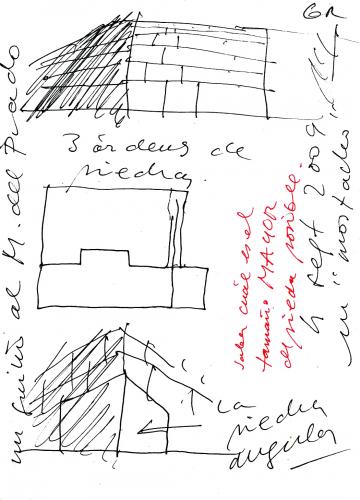 GR
3 órdenes de
piedra.
un guiño al M. del Prado
4 sept 2009.
en "mostados"
saber cuál es el
tamaño MAYOR
de piedra posible.
La
piedra
angular